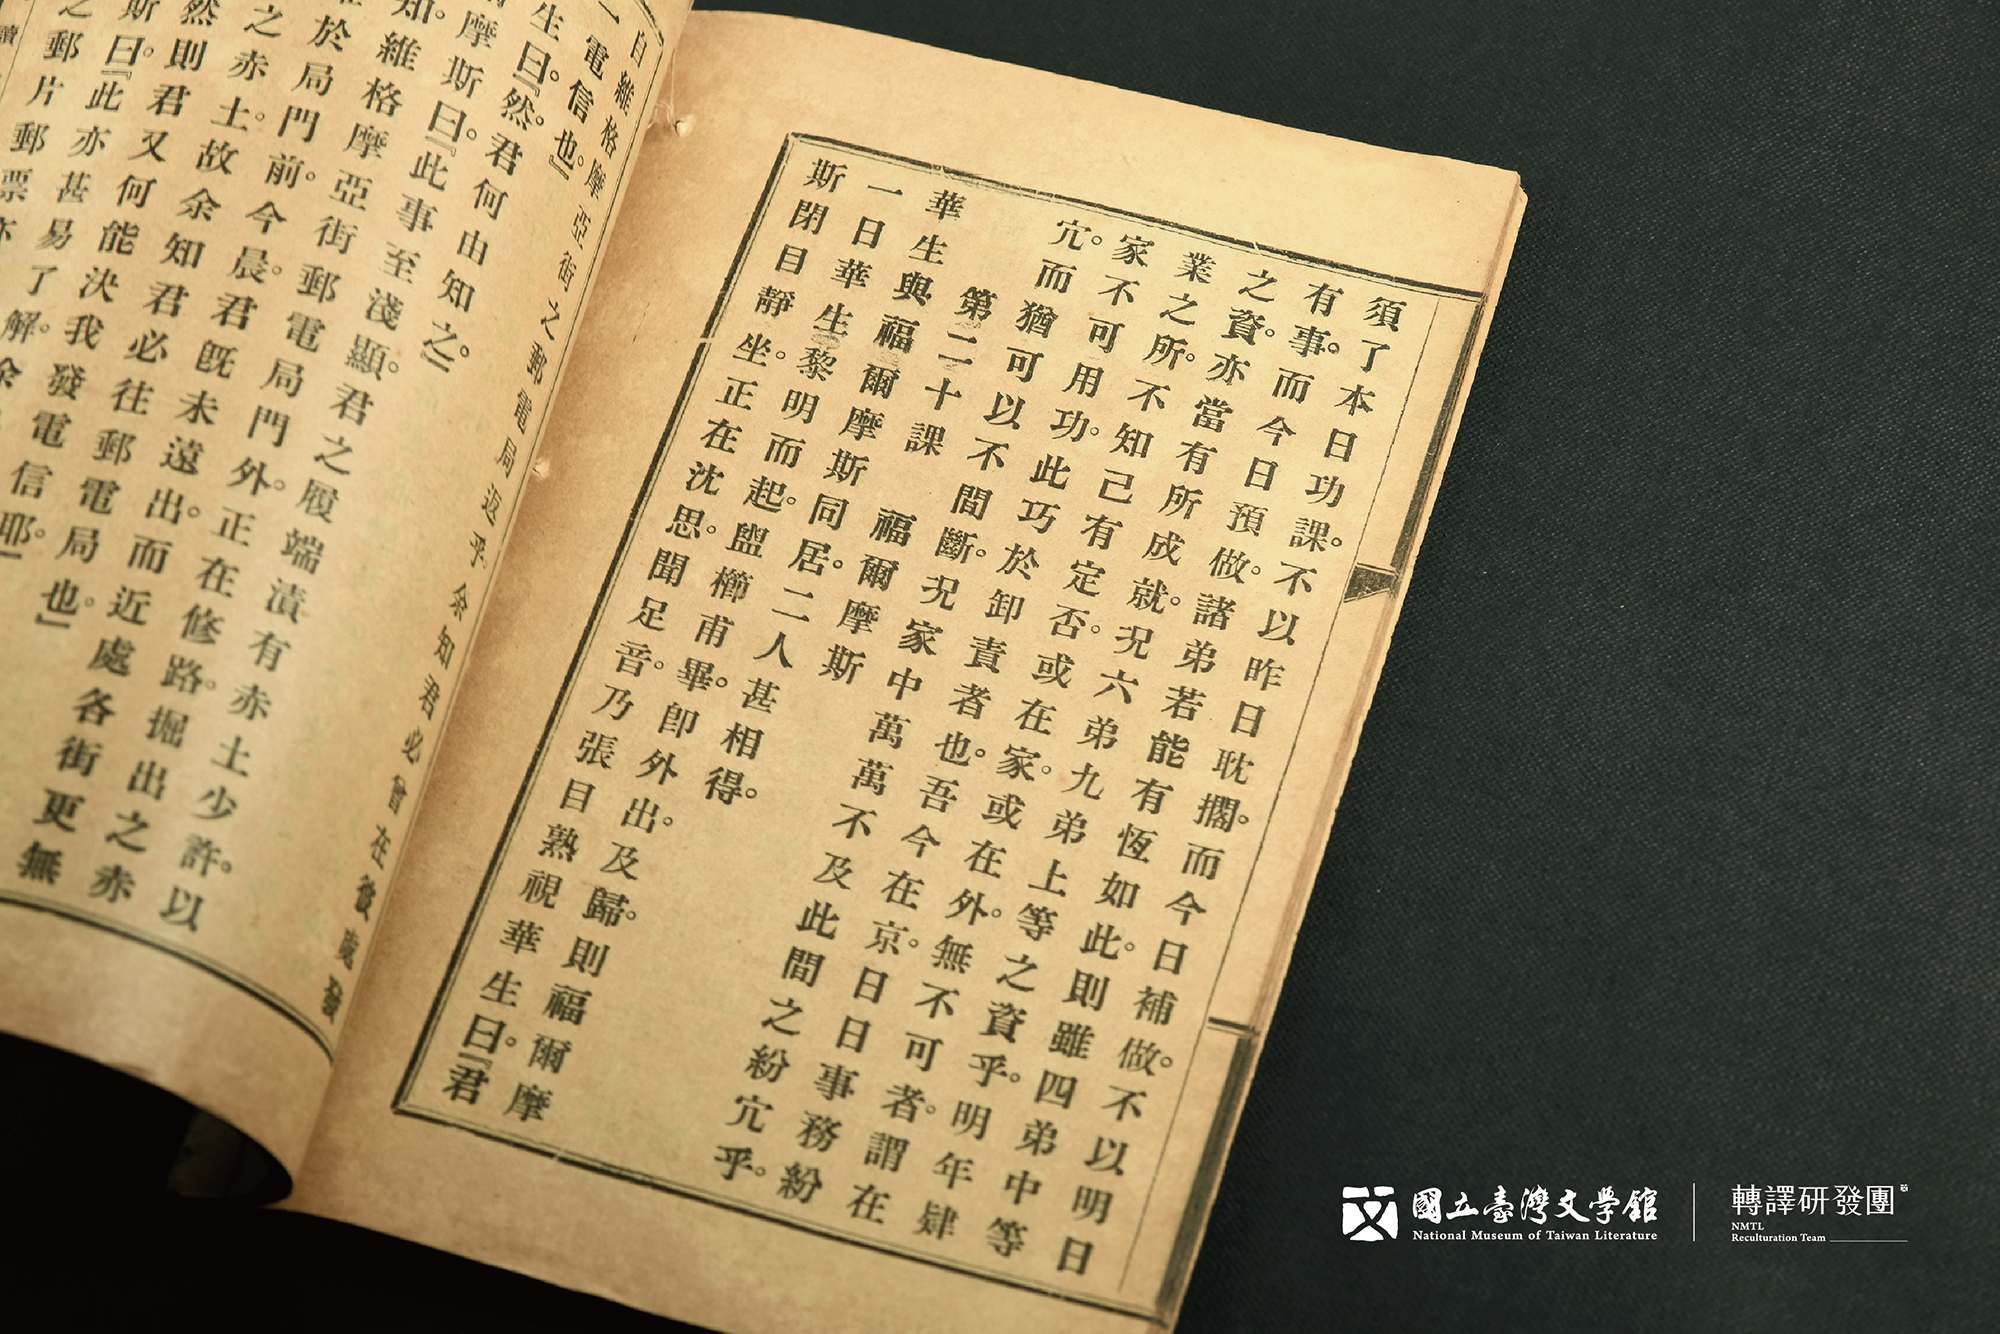 須了本日功課。不以昨日耽擱。而今日補做。不以明日
有事。而今日預做。諸弟若能有恆如此。則雖四弟中等
之資。亦當有所成就。況六弟九弟上等之資乎。明年肄
業之所。不知己有定否。或在家。或在外。無不可者。謂在
家不可用功。此巧於卸責者也。吾今在京。日日事務紛
宂。而猶可以不間斷。況家中萬萬不及此間之紛宂乎。
第二十課 福爾摩斯
華生與福爾摩斯同居。二人甚相得。
一日華生黎明而起。盥櫛甫畢。即外出。及歸。則福爾摩
斯閉目靜坐。正在沈思。聞足音。乃張目熟視華生。曰『君
自維格摩亞街之郵電局返乎余知君必曾在彼處發
一電信也。』
生曰。『然。君何由知之。』
摩斯曰。『此事至淺顯。君之履端漬有赤土少許。以
知。維格摩亞街郵電局門外。正在修路。掘出之赤
於局門前。今晨。君既未遠出。而近處各街更無
之赤土。故余知君必往郵電局也。』
然則君又何能決我發電信耶。』
斯曰。『此亦甚易了解。余
之郵片郵票亦
讀
國立臺灣文學館
National Museum of Taiwan Literature
轉譯研發團
NMTL
Reculturation Team